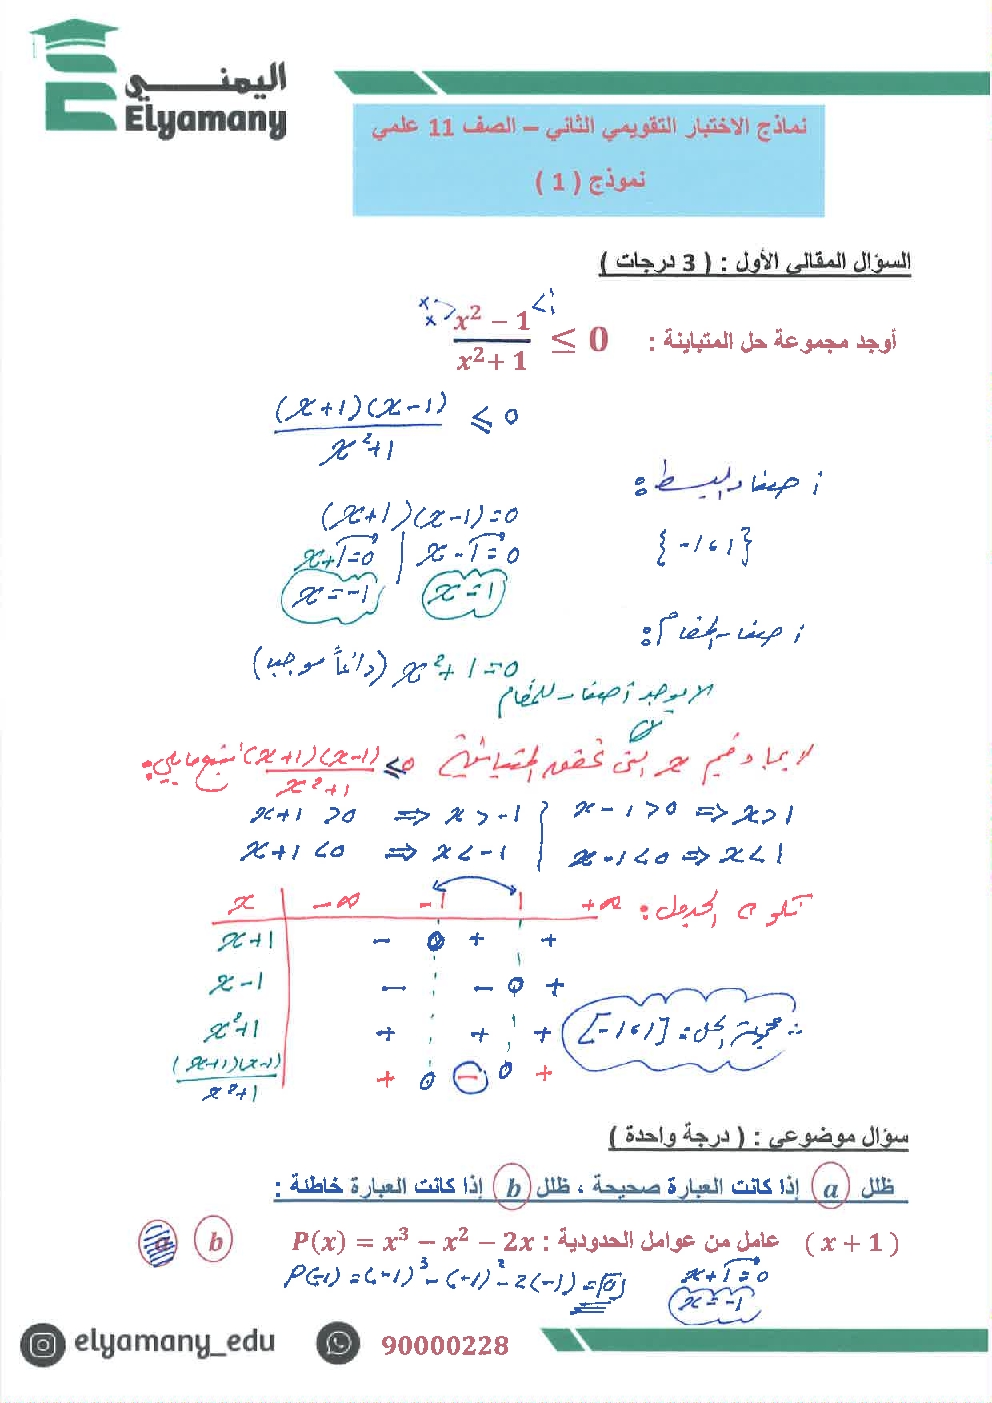 اليمنـــي
Elyamany
نماذج الاختبار التقويمي الثاني – الصف 11 علمي
نموذج ( 1 )
السؤال المقالي الأول : ( 3 درجات )
أوجد مجموعة حل المتباينة : (x² − 1)/(x² + 1) ≤ 0
((x+1)(x-1))/(x²+1) ≤ 0
أصفار البسط :
(x+1)(x-1)=0
{-1، 1}
x+1=0 | x-1=0
x=-1 x=1
أصفار المقام :
x²+1=0 (دائماً موجب)
لا يوجد أصفار للمقام
لإيجاد قيم x التي تحقق المتباينة ((x+1)(x-1))/(x²+1) ≤ 0 نتبع ما يلي :
x+1 >0 ⇒ x>-1 x-1>0 ⇒ x>1
x+1 <0 ⇒ x<-1 x-1<0 ⇒ x<1
الجدول :
x -∞ -1 1 +∞
x+1 - 0 + +
x-1 - - 0 +
x²+1 + + +
((x+1)(x-1))/(x²+1) + 0 - 0 +
∴ مجموعة الحل : [-1، 1]
سؤال موضوعي : ( درجة واحدة )
ظلل a إذا كانت العبارة صحيحة ، ظلل b إذا كانت العبارة خاطئة :
( x + 1 ) عامل من عوامل الحدودية : P(x) = x³ − x² − 2x b a
P(-1) = (-1)³ - (-1)² - 2(-1) = 0
x+1=0
x=-1
elyamany_edu 90000228